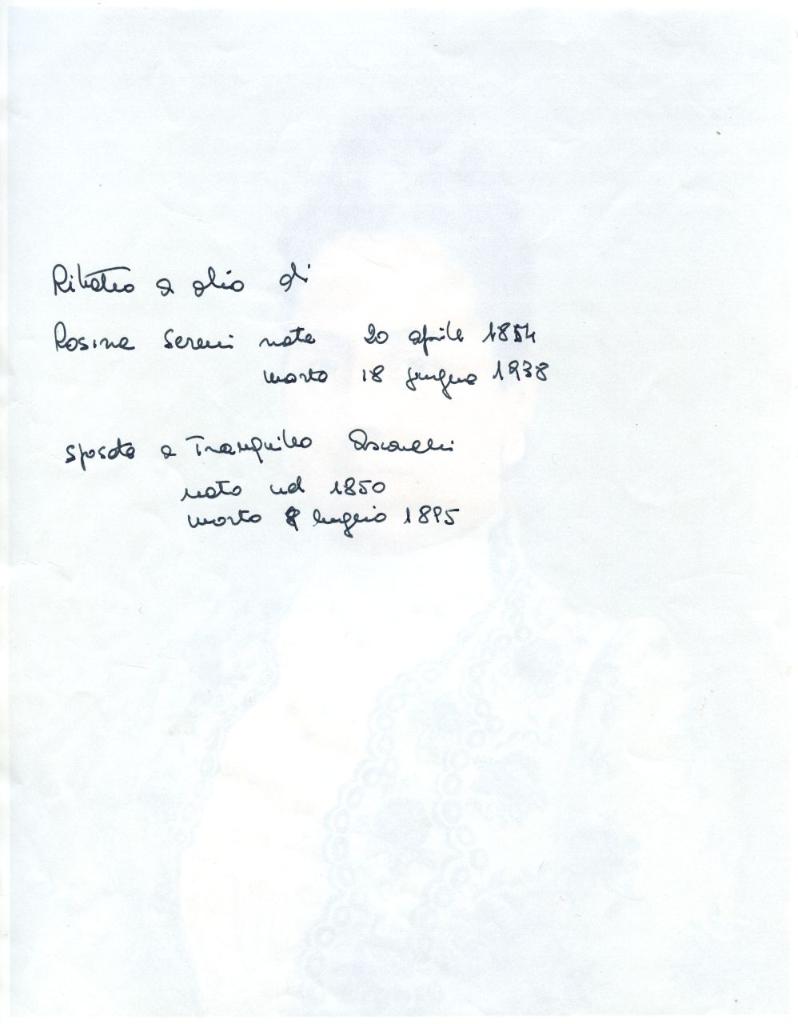 Ritratto a olio di
Rosina Sereni nata 20 aprile 1854
morta 18 giugno 1938
sposata a Tranquillo Ascarelli
nato nel 1850
morto 8 luglio 1895